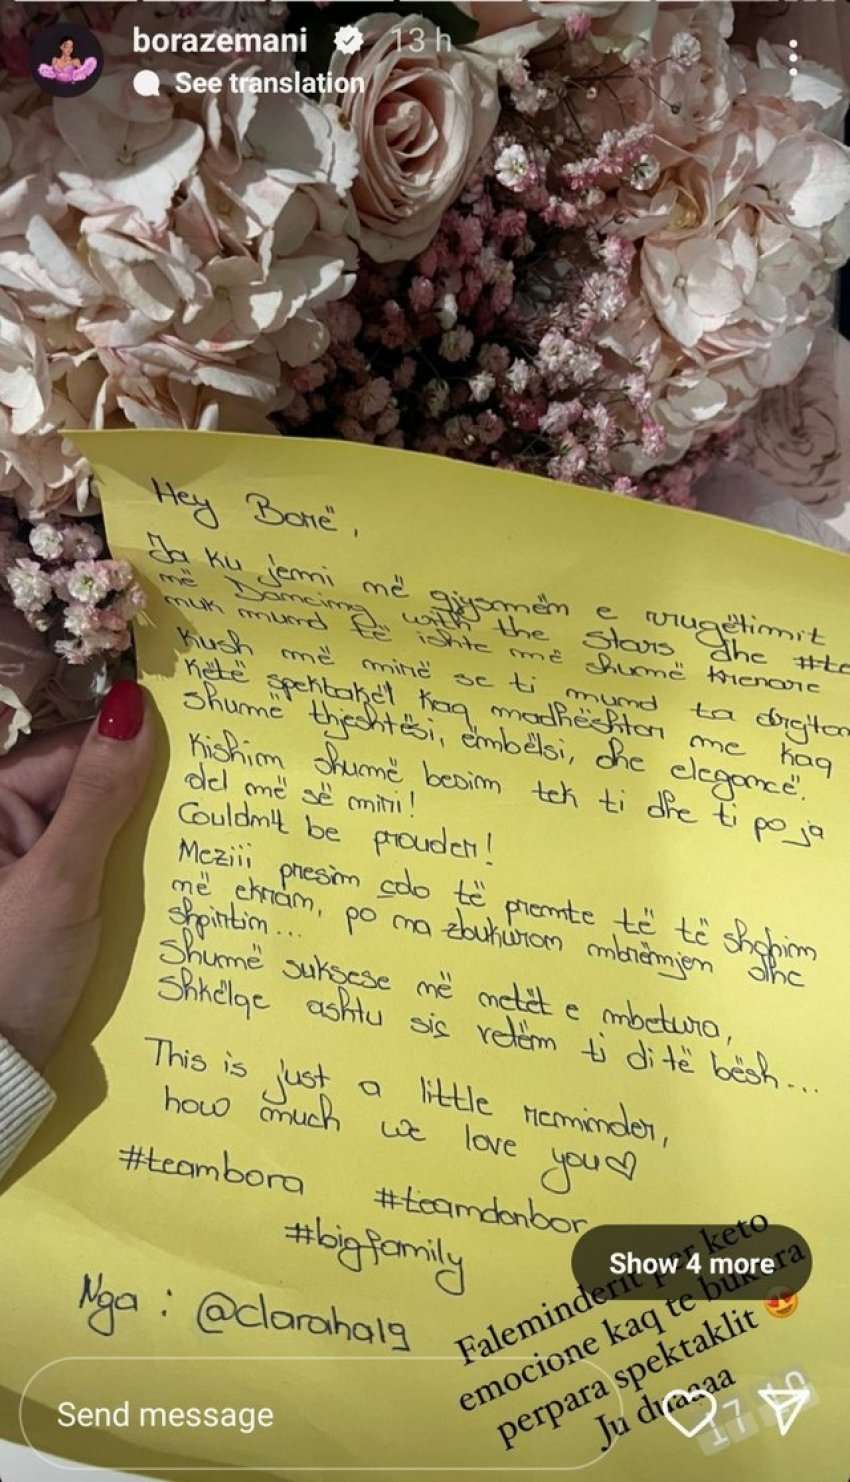 borazemani 13 h
See translation
Hey Borë,
Ja ku jemi më gjysmëm e rrugëtimit
më Dancing with the Stars dhe #te
nuk mund të ishte më shumë krenare
Kush më mirë se ti mund ta drejton
këtë spektakël kaq madhështor me kaq
shumë thjeshtësi, ëmbëlsi, dhe elegancë.
Kishim shumë besim tek ti dhe ti po ja
del më së miri!
Couldn't be prouder!
Meziii presim çdo të premte të të shohim
më ekran, po ma zbukuron mbrëmjen dhe
shpirtin...
Shumë suksese më netët e mbetura,
Shkëlqe ashtu siç vetëm ti di të bësh...
This is just a little reminder,
how much we love you♡
#teambora #teamdonbor
#bigfamily
Nga : @claraha19
Show 4 more
Faleminderit per keto
emocione kaq te bukura
perpara spektaklit 😍
Ju duaaaa
Send message